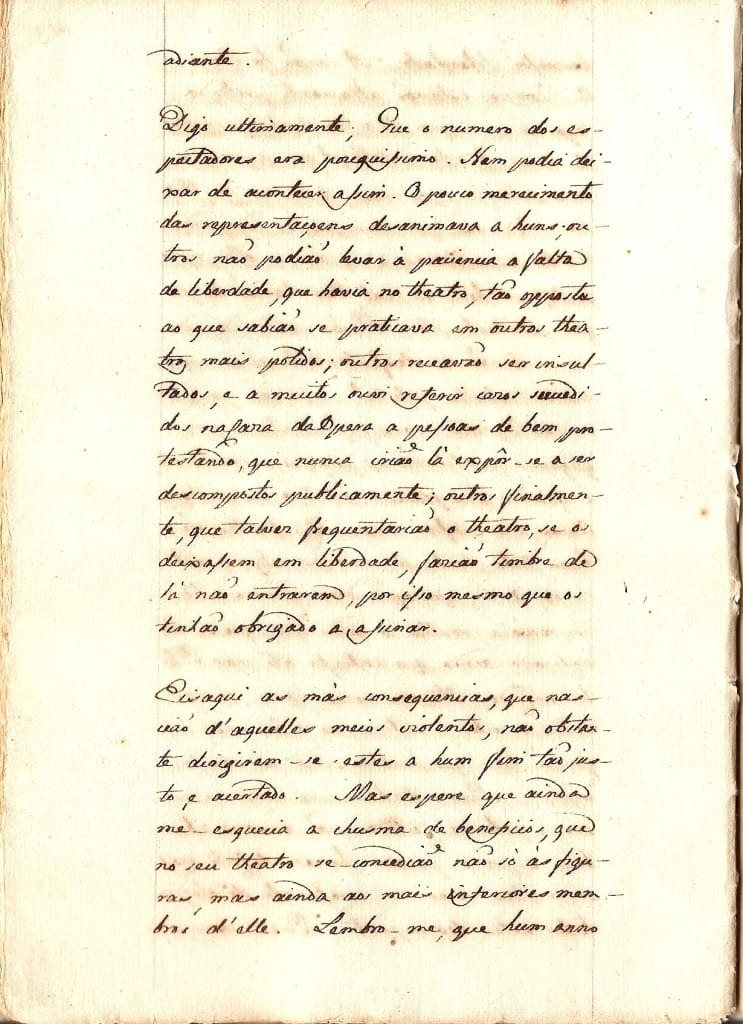 adiante.
Digo ultimamente; Que o numero dos es-
pectadores era pouquissimo. Nem podia dei-
xar de acontecer assim. O pouco merecimento
das representaçoens desanimava a huns; ou-
tros naõ podiaõ levar à paciencia a falta
de liberdade, que havia no theatro, taõ opposta
ao que sabiaõ se praticava em outros thea-
tros mais polidos; outros receavaõ ser insul-
tados, e a muitos ouvi referir cazos succedi-
dos na Caza da Opera a pessoas de bem pro-
testando, que nunca iriaõ là expôr-se a ser
descompostos publicamente; outros finalmen-
te, que talvez frequentariaõ o theatro, se os
deixassem em liberdade, faziaõ timbre de
là naõ entrarem, por isso mesmo que os
tinhaõ obrigado a assinar.
Eisaqui as màs consequencias, que nas-
ciaõ d'aquelles meios violentos, naõ obstan-
te dirigirem-se estes a hum fim taõ jus-
to, e acertado. Mas espere que ainda
me-esquecia a chusma de beneficios, que
no seu theatro se-concediaõ naõ sò às figu-
ras, mas ainda aos mais inferiores mem-
bros d'elle. Lembro-me, que hum anno